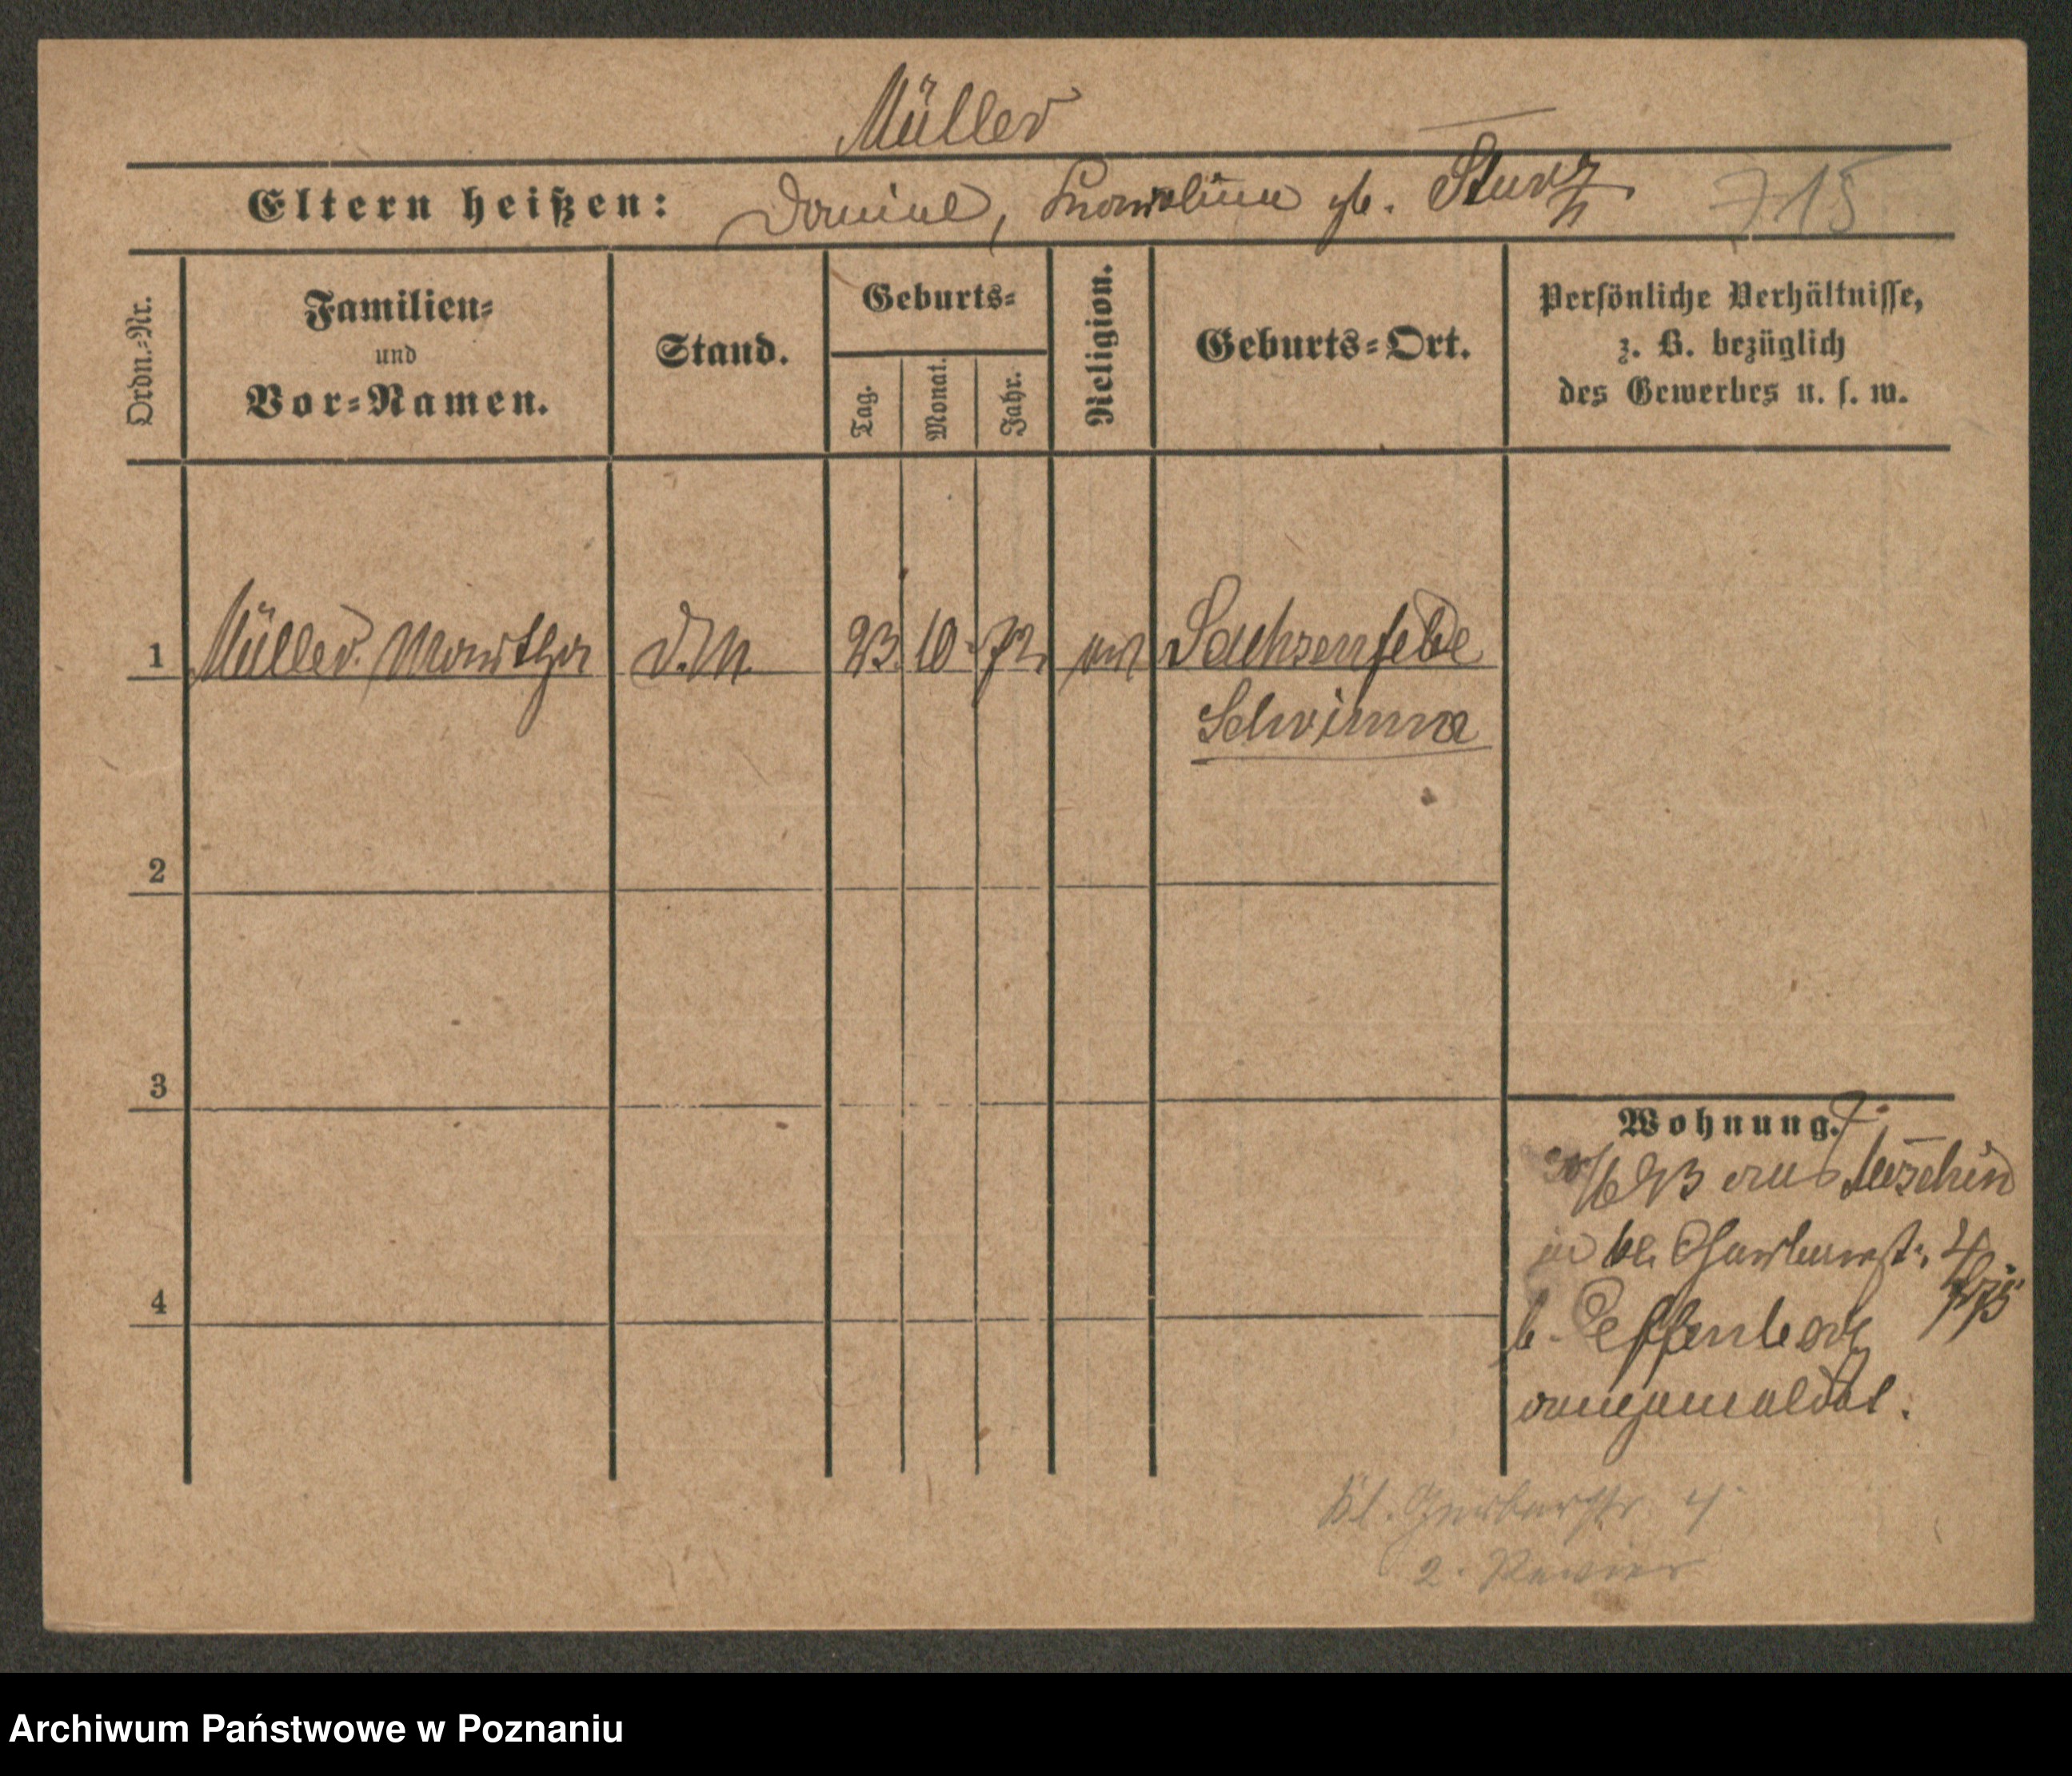 Müller
Eltern heißen: Daniel, Karoline gb. Sturz 715
Ordn.-Nr.
Familien-
und
Vor-Namen.
Stand.
Geburts-
Tag.
Monat.
Jahr.
Religion.
Geburts-Ort.
Persönliche Verhältnisse,
z. B. bezüglich
des Gewerbes u. s. w.
1 Müller Martha D.M. 23. 10. 72 Sachsenfelde
Schrimm
2
3
4
Wohnung.
/6 93 aus
kl. Gerberstr. 4
b.
angemeldet.
Kl. Gerberstr. 4
2. Revier
Archiwum Państwowe w Poznaniu